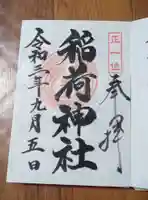 奉拝
正一位
稲荷神社
令和三年九月五日